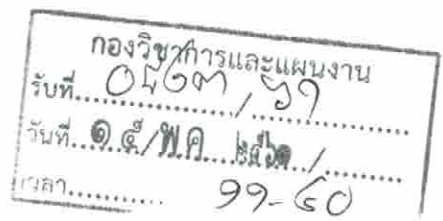 กองวิชาการและแผนงาน
รับที่............/๖๑
วันที่ ๑๕/พ.ค. ๒๕๖๑/......
เวลา........... ๑๑-๔๐